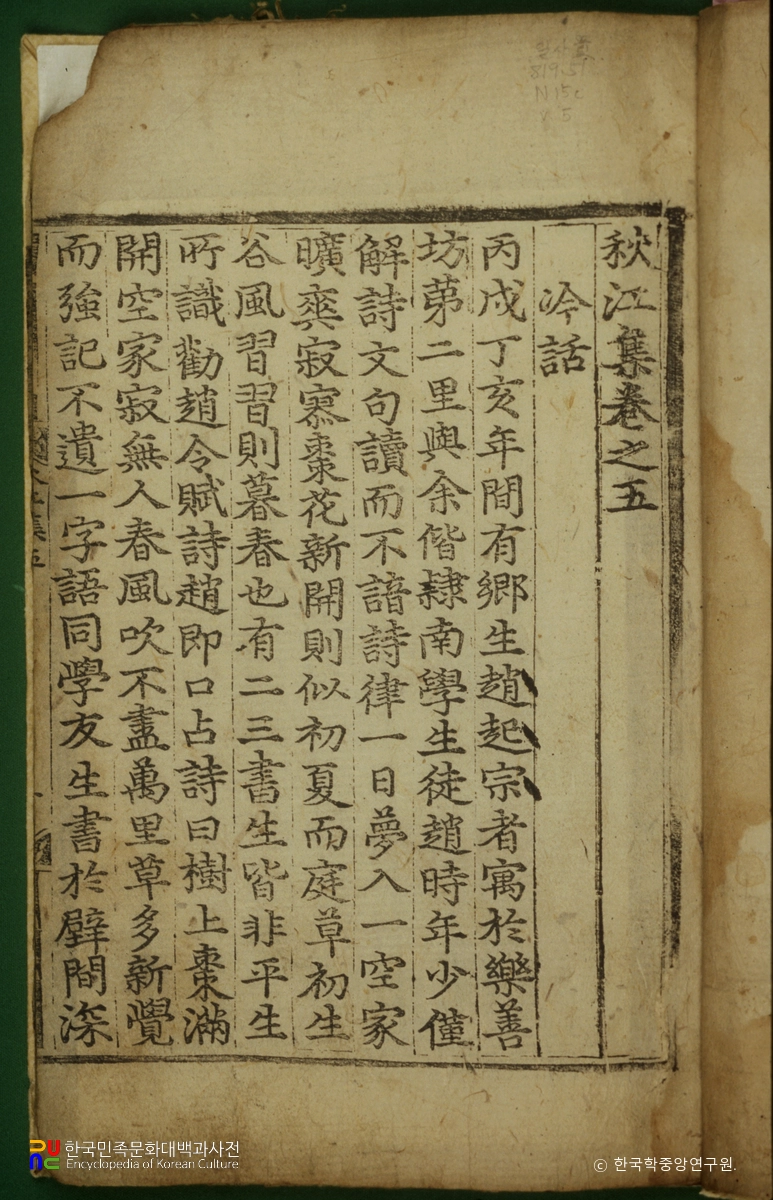 秋江集卷之五
冷話
丙戌丁亥年間有鄉生趙起宗者寓於樂善
坊第二里與余偕隷南學生徒趙時年少僅
解詩文句讀而不諳詩律一日夢入一空家
曠爽寂寞棗花新開則似初夏而庭草初生
谷風習習則暮春也有二三書生皆非平生
所識勸趙令賦詩趙即口占詩曰樹上棗滿
開空家寂無人春風吹不盡萬里草多新覺
而強記不遺一字語同學友生書於壁間深
819.51
N15c
v.5
한국민족문화대백과사전
Encyclopedia of Korean Culture
© 한국학중앙연구원.